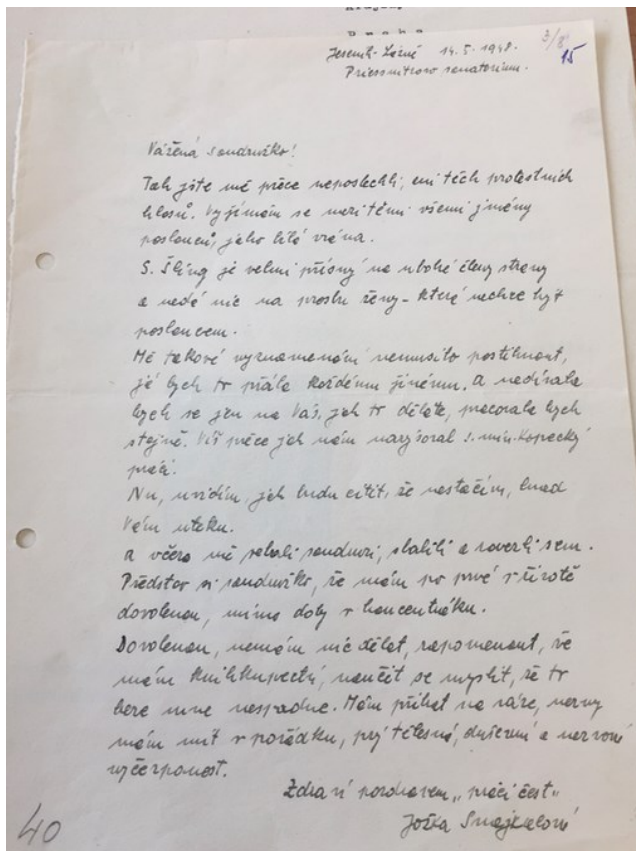 Praha
Jeseník-Lázně 14.5.1948.
Priessnitzovo sanatorium.
3/8
15
Vážená soudružko!
Tak jste mé práce neposlechli, ani těch protestních
hlasů. Vyjímám se mezi těmi všemi jmény
poslanců, jako bílá vrána.
S. Šling je velmi přísný na ubohé členy strany
a nedá nic na prosbu ženy - která nechce být
poslancem.
Mě takové vyznamenání nemusilo postihnout,
já bych to přála každému jinému. A nadívala
bych se jen na Vás, jak to děláte, pracovala bych
stejně. Víš práce jak nám narýsoval s. min. Kopecký
práci.
Nu, uvidím, jak budu cítit, že nestačím, hned
Vám uteku.
A včera mě sebrali soudruzi, sbalili a zavezli sem.
Představ si soudružko, že mám po prvé v životě
dovolenou, mimo doby v koncentráku.
Dovolenou, nemám nic dělat, zapomenout, že
mám knihkupectví, naučit se myslit, že to
beze mne nespadne. Mám přibrat na váze, nervy
mám mít v pořádku, prý tělesná, duševní a nervová
vyčerpanost.
Zdraví pozdravem „práci čest“
Jožka Smejkalová
40